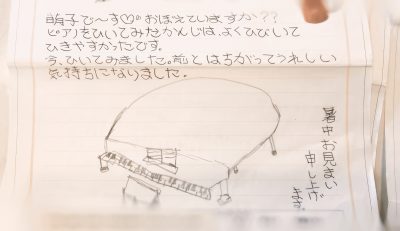 萌子で〜す♡。おぼえていますか??
ピアノをひいてみたかんじは、よくひびいて
ひきやすかったです。
今、ひいてみました。前とはちがってうれしい
気持ちになりました。
暑中お見まい
申し上げ
ます。